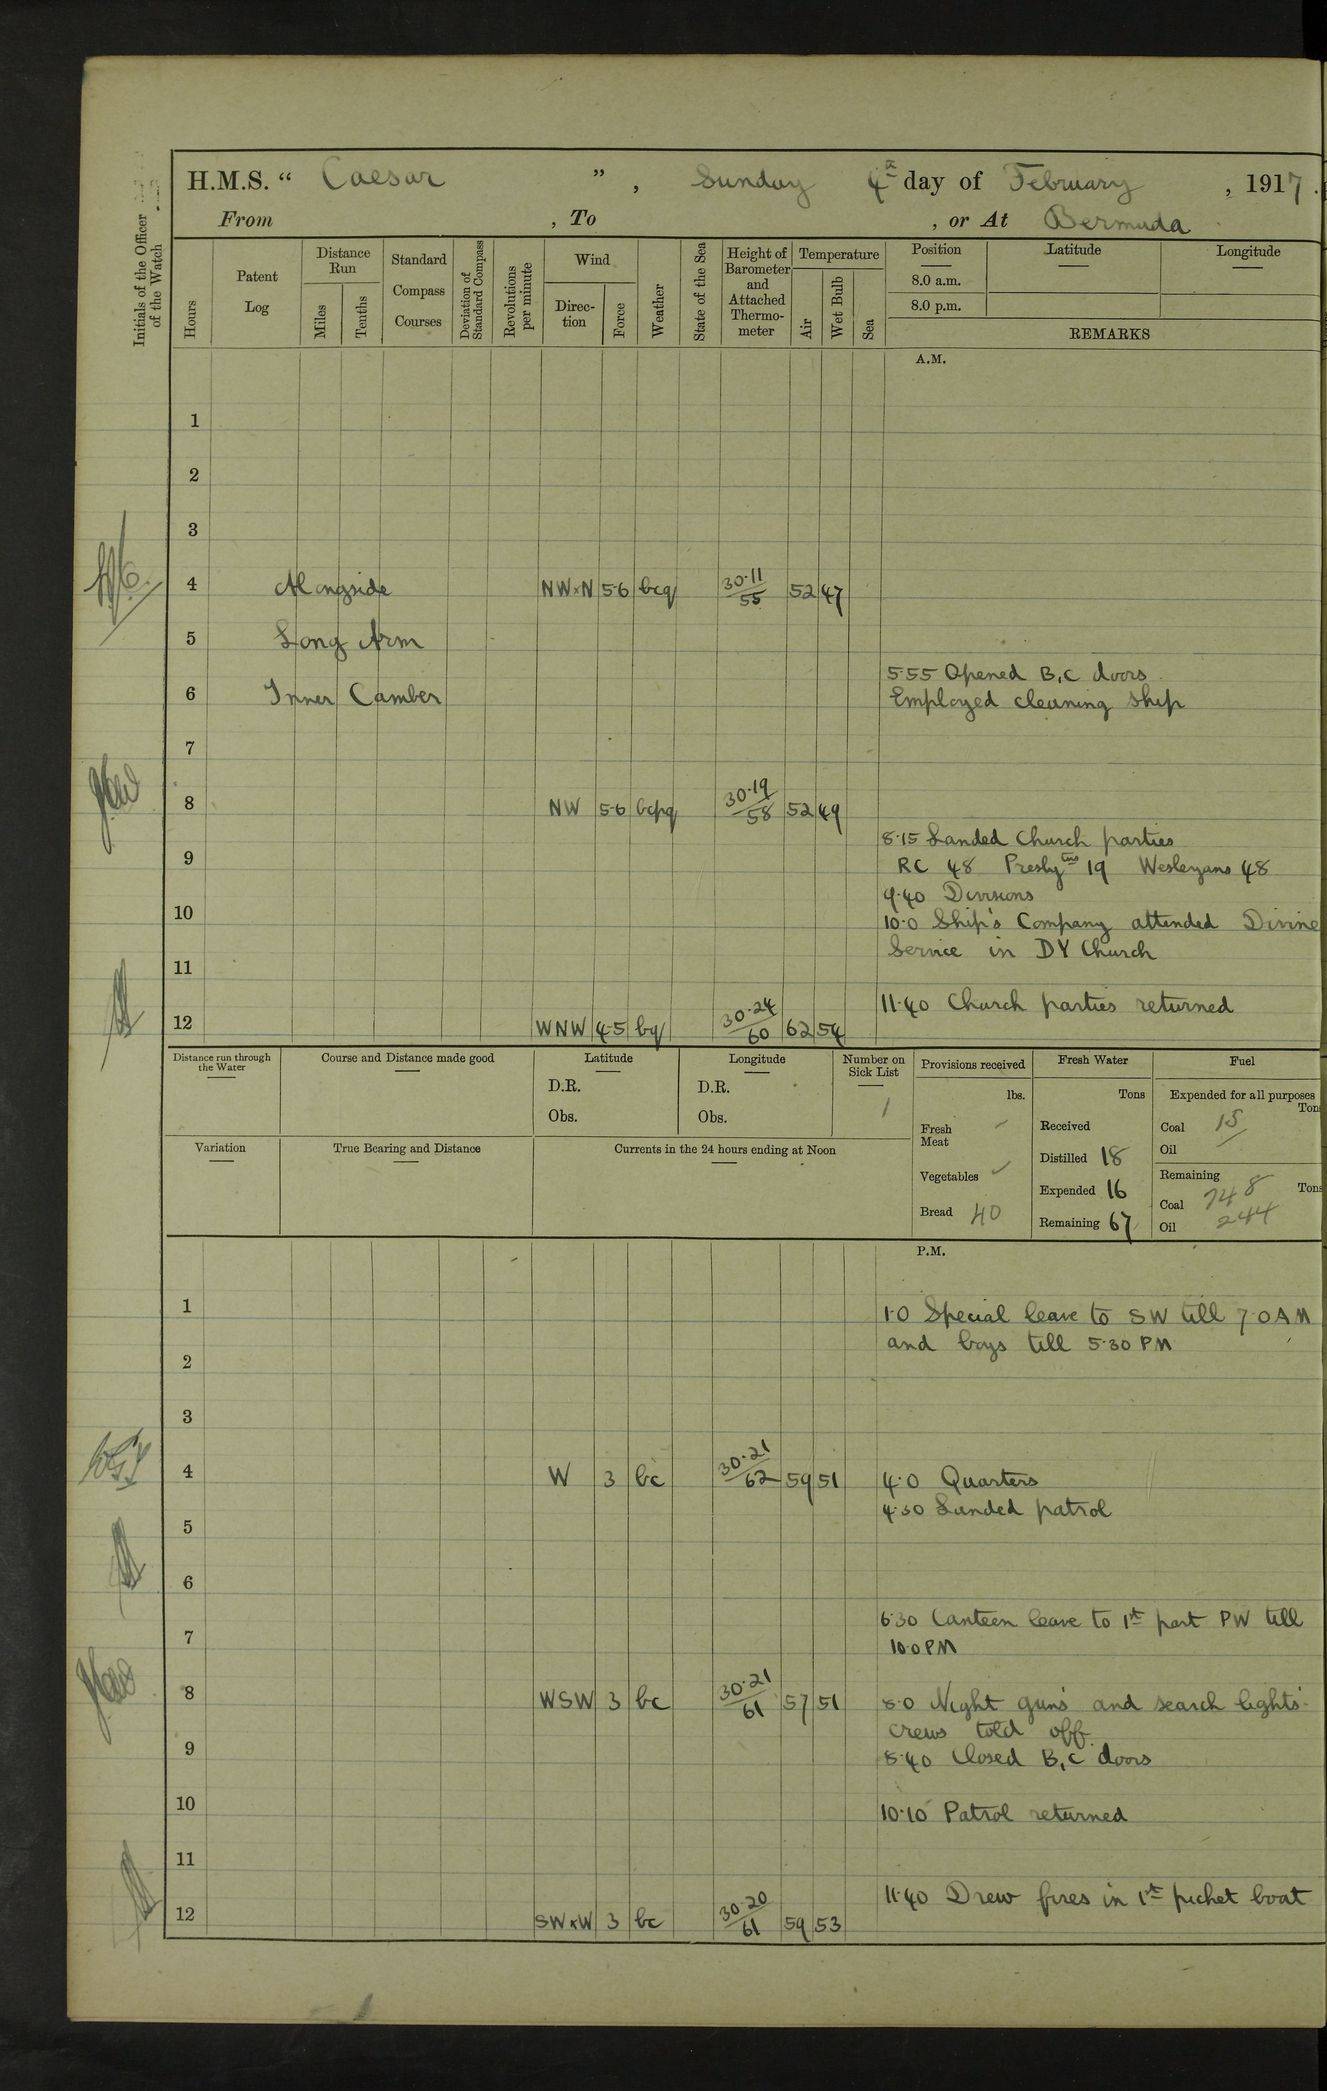 H.M.S. “ Caesar ” , Sunday 4th day of February , 1917.
From , To , or At Bermuda
Initials of the Officer of the Watch
Hours
Patent Log
Distance Run
Miles
Tenths
Standard Compass Courses
Deviation of Standard Compass
Revolutions per minute
Wind
Direc-tion
Force
Weather
State of the Sea
Height of Barometer and Attached Thermo-meter
Temperature
Air
Wet Bulb
Sea
Position Latitude Longitude
8.0 a.m.
8.0 p.m.
REMARKS
A.M.
1
2
3
4 Alongside NW×N 5·6 bcq 30·11/55 52 47
5 Long Arm
5·55 Opened B,C doors
6 Inner Camber Employed cleaning ship
7
8 NW 5·6 bcpq 30·19/58 52 49
8·15 Landed Church parties
9 RC 48 Presbytns 19 Wesleyans 48
9·40 Divisions
10 10·0 Ship's Company attended Divine
Service in DY Church
11
11·40 Church parties returned
12 WNW 4·5 bq 30·24/60 62 54
Distance run through the Water
Course and Distance made good
Latitude
D.R.
Obs.
Longitude
D.R.
Obs.
Number on Sick List
1
Provisions received
lbs.
Fresh Meat
Vegetables
Bread 40
Fresh Water
Tons
Received
Distilled 18
Expended 16
Remaining 67
Fuel
Expended for all purposes
Tons
Coal 15
Oil
Remaining
Tons
Coal 748
Oil 244
Variation
True Bearing and Distance
Currents in the 24 hours ending at Noon
P.M.
1 1·0 Special leave to SW till 7·0 AM
and boys till 5·30 PM
2
3
4 W 3 bc 30·21/62 59 51 4·0 Quarters
4·30 Landed patrol
5
6
6·30 Canteen leave to 1st part PW till
7 10·0 PM
8 WSW 3 bc 30·21/61 57 51 8·0 Night guns' and search lights'
crews told off.
9 8·40 Closed B,C doors
10 10·10 Patrol returned
11
11·40 Drew fires in 1st picket boat
12 SW×W 3 bc 30·20/61 59 53